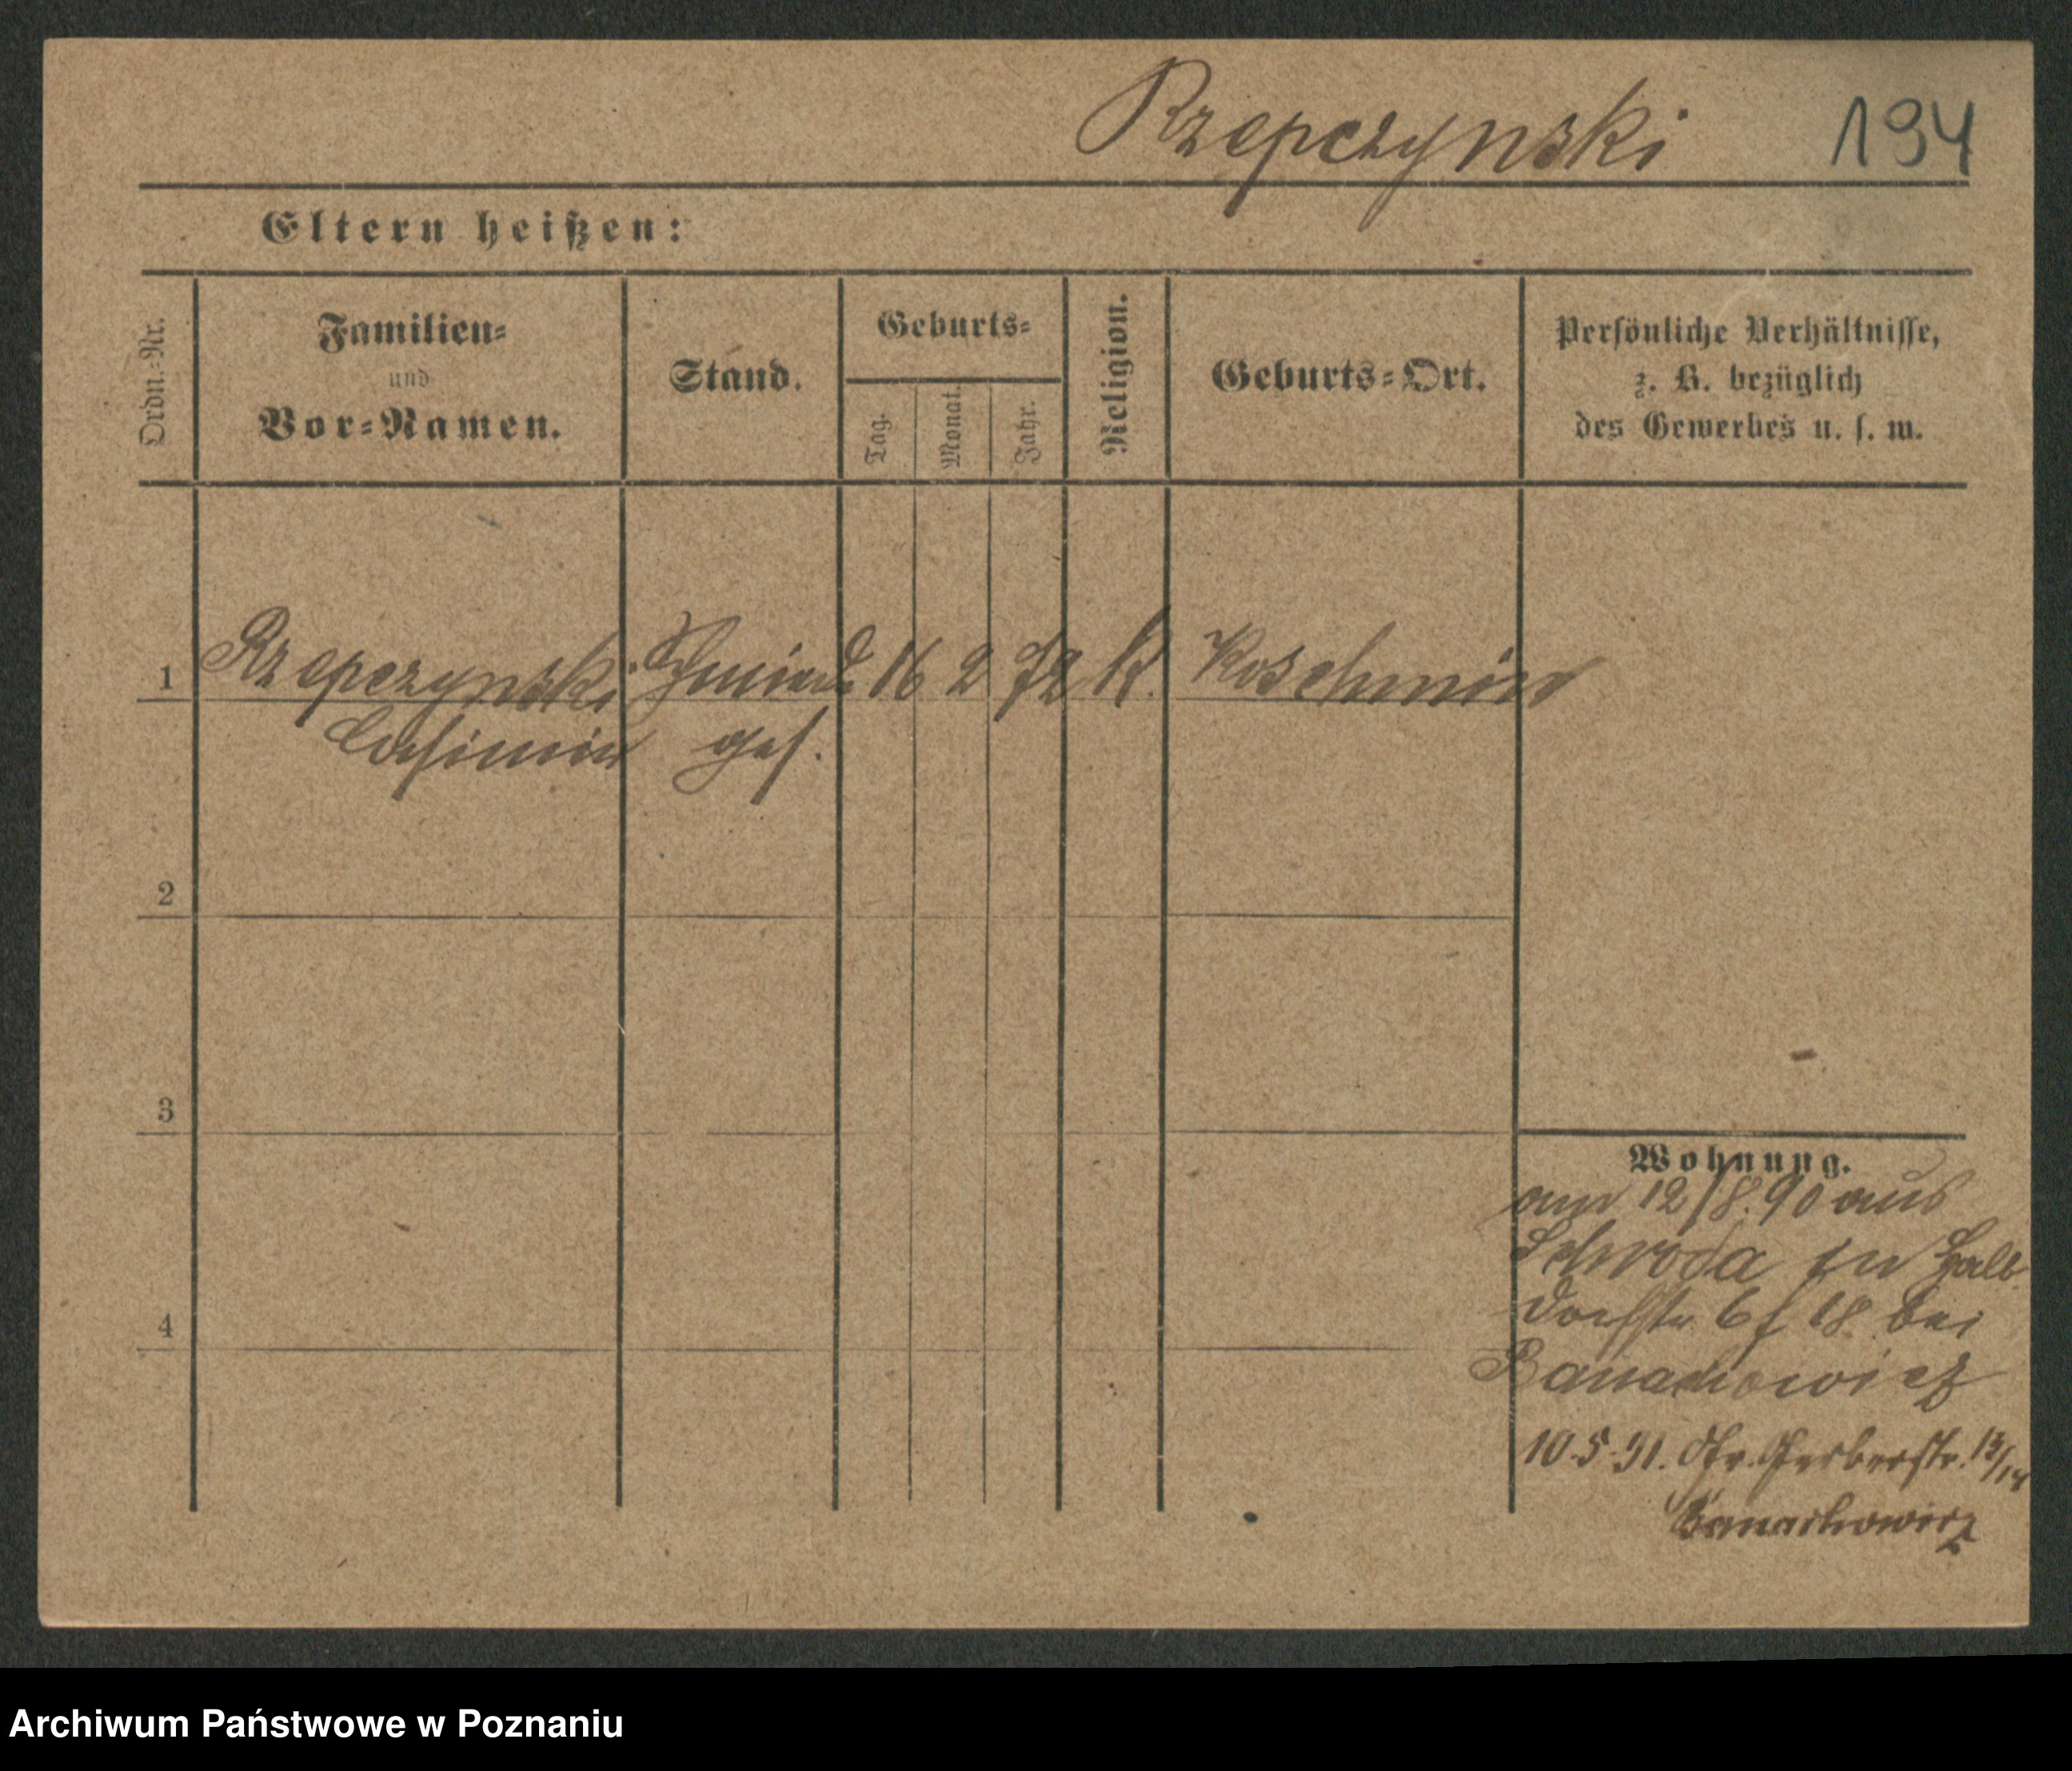 Rzepczynski 194
Eltern heißen:
Ordn.-Nr.
Familien-
und
Vor-Namen.
Stand.
Geburts-
Tag.
Monat.
Jahr.
Religion.
Geburts-Ort.
Persönliche Verhältnisse,
z. B. bezüglich
des Gewerbes u. s. w.
1 Rzepczynski Schmiede 16 2 72 K. Koschmin
Casimir ges.
2
3
4
Wohnung.
am 12/8.90 aus
Schroda in Halb
dorfstr. 18 bei
Banachowicz
10.5.91. Gr. Gerberstr. 13/14
Banachowicz
Archiwum Państwowe w Poznaniu